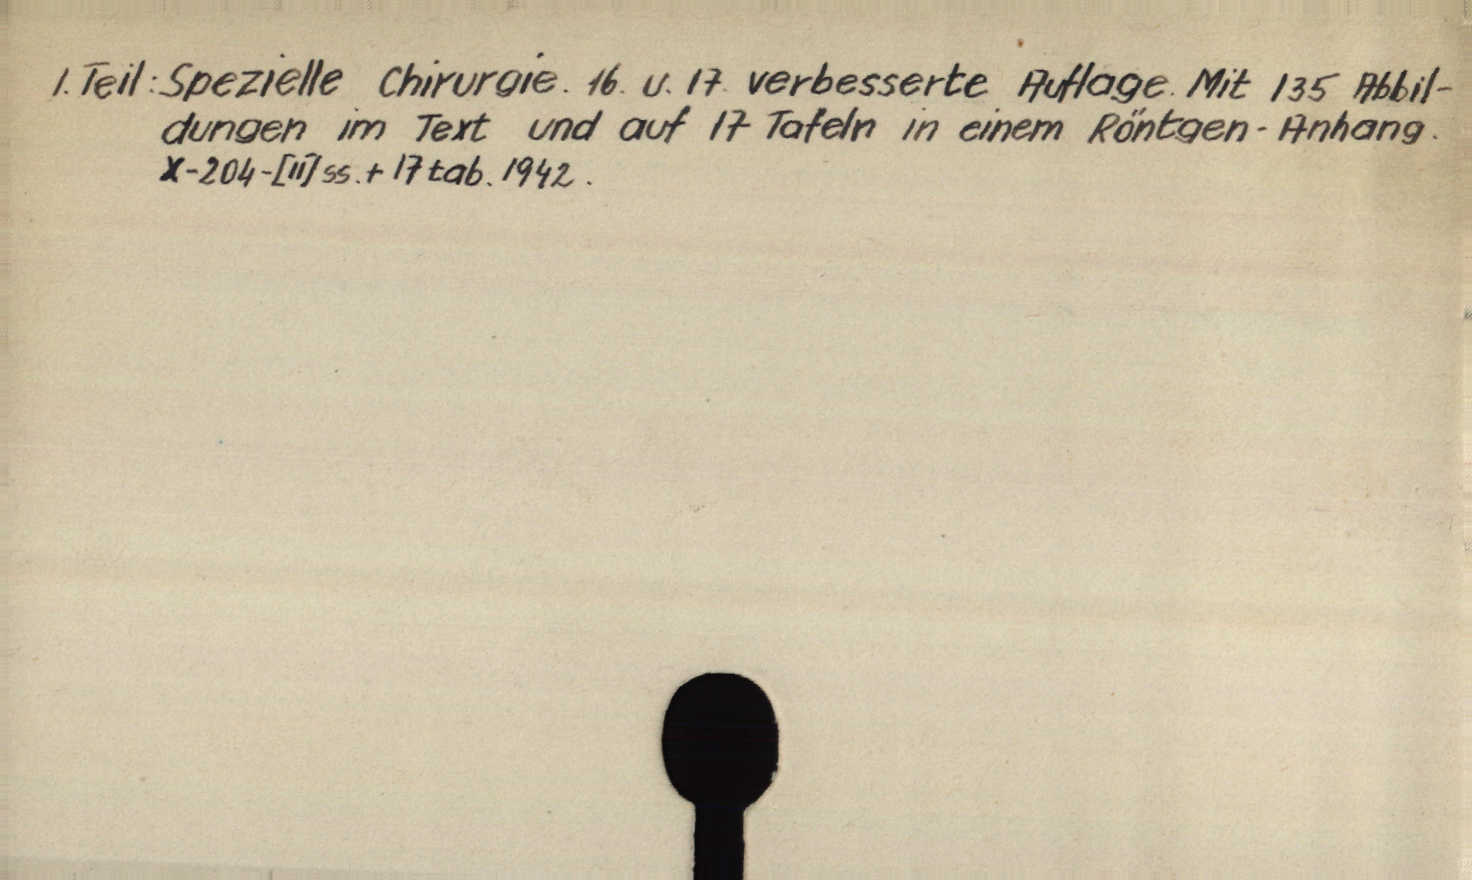 1. Teil: Spezielle Chirurgie. 16. u. 17. verbesserte Auflage. Mit 135 Abbil-
dungen im Text und auf 17 Tafeln in einem Röntgen-Anhang.
X-204-[II] ss. + 17 tab. 1942.